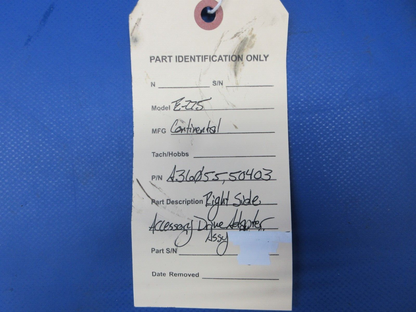 PART IDENTIFICATION ONLY
N S/N
Model E-225
MFG Continental
Tach/Hobbs
P/N A36055, 50403
Part Description Right Side
Accessory Drive Adapter
Assy
Part S/N
Date Removed